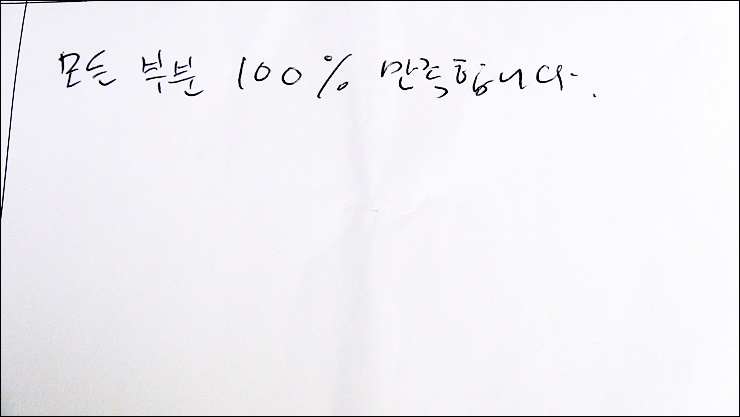 모든 부분 100% 만족합니다.